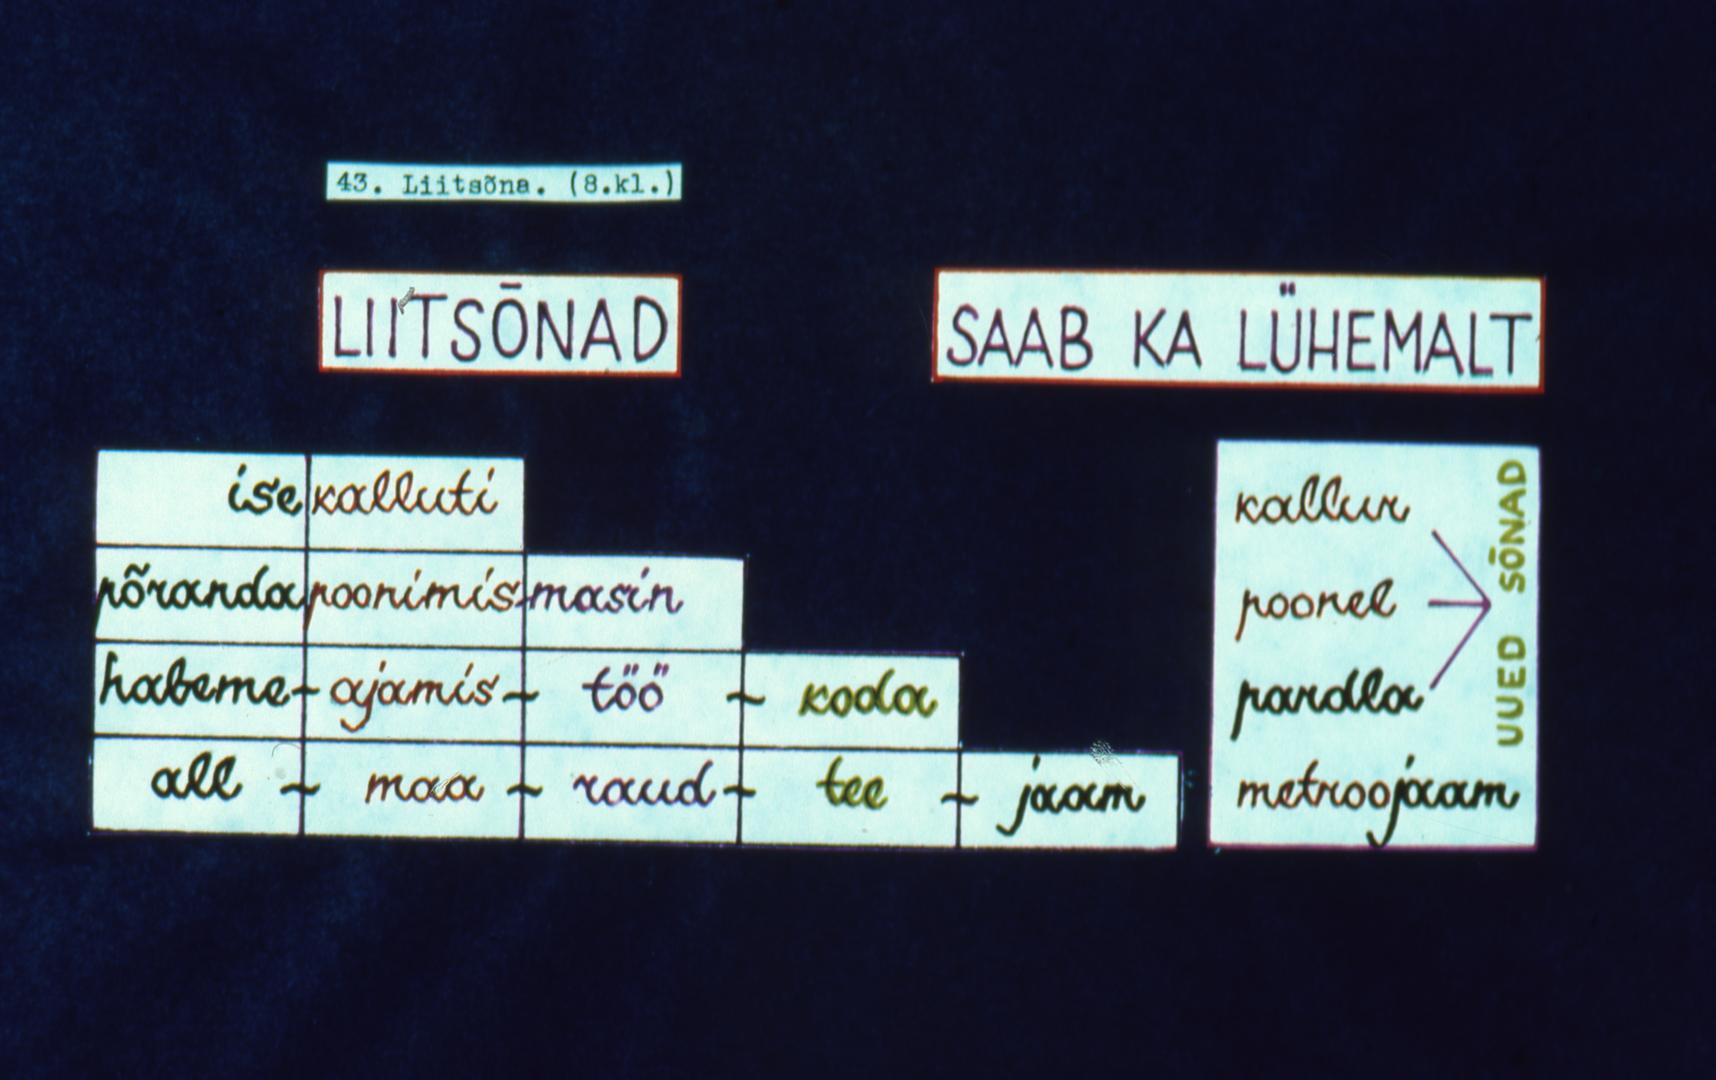 43. Liitsõna. (8.kl.)
LIITSÕNAD
SAAB KA LÜHEMALT
ise kalluti
põranda poonimis- masin
habeme - ajamis - töö - koda
all - maa - raud - tee - jaam
kallur
poonel
pardla
metroojaam
UUED SÕNAD